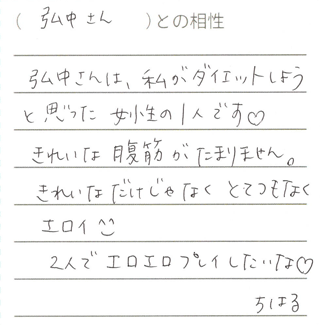 （ 弘中さん ）との相性
弘中さんは、私がダイエットしよう
と思った女性の1人です♡
きれいな腹筋がたまりません。
きれいなだけじゃなくとてつもなく
エロイ^^
2人でエロエロプレイしたいな♡
ちはる